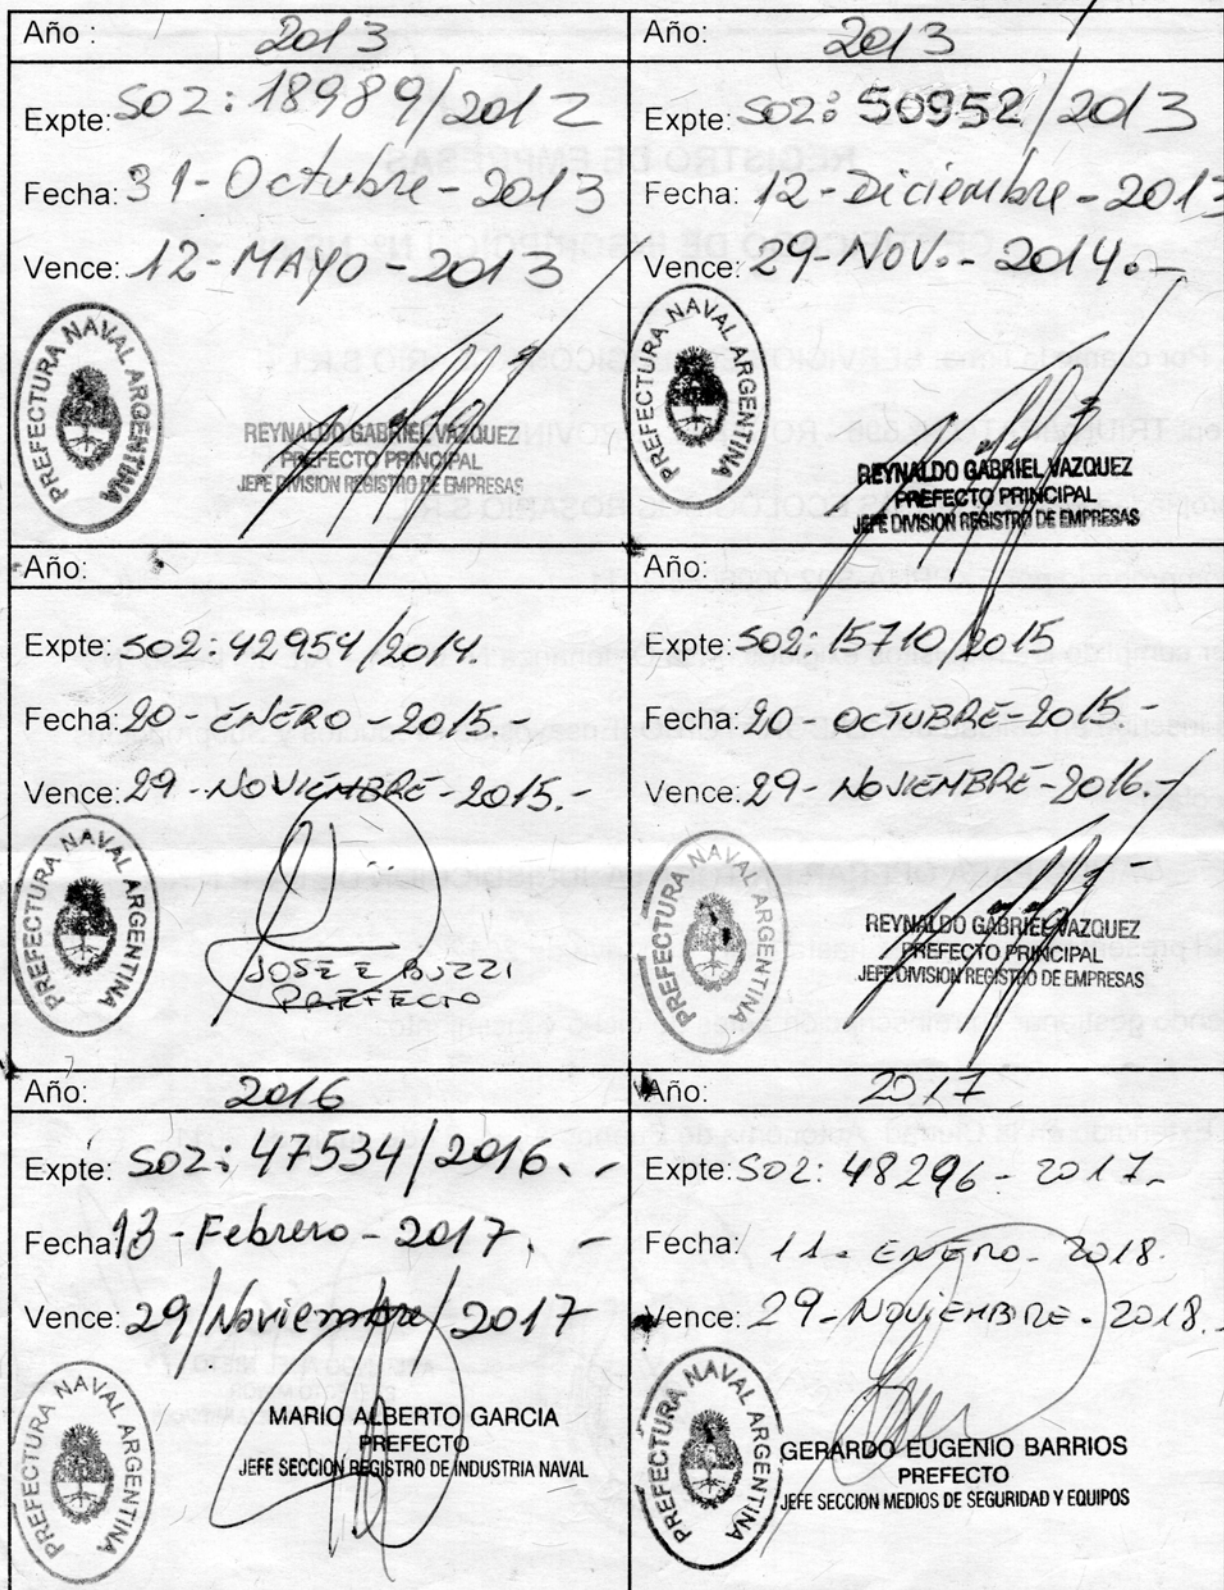 Año : 2013
Expte: S02: 18989/2012
Fecha: 31-Octubre-2013
Vence: 12-MAYO-2013
PREFECTURA NAVAL ARGENTINA
REYNALDO GABRIEL VAZQUEZ
PREFECTO PRINCIPAL
JEFE DIVISION REGISTRO DE EMPRESAS
Año: 2013
Expte: S02: 50952/2013
Fecha: 12-Diciembre-2013
Vence: 29-NOV.-2014.-
PREFECTURA NAVAL ARGENTINA
REYNALDO GABRIEL VAZQUEZ
PREFECTO PRINCIPAL
JEFE DIVISION REGISTRO DE EMPRESAS
Año:
Expte: S02: 42954/2014.
Fecha: 20-ENERO-2015.-
Vence: 29-NOVIEMBRE-2015.-
PREFECTURA NAVAL ARGENTINA
JOSE E BUZZI
PREFECTO
Año:
Expte: S02: 15710/2015
Fecha: 20-OCTUBRE-2015-
Vence: 29-NOVIEMBRE-2016.-
PREFECTURA NAVAL ARGENTINA
REYNALDO GABRIEL VAZQUEZ
PREFECTO PRINCIPAL
JEFE DIVISION REGISTRO DE EMPRESAS
Año: 2016
Expte: S02: 47534/2016.-
Fecha: 13-Febrero-2017.-
Vence: 29/Noviembre/2017
PREFECTURA NAVAL ARGENTINA
MARIO ALBERTO GARCIA
PREFECTO
JEFE SECCION REGISTRO DE INDUSTRIA NAVAL
Año: 2017
Expte: S02: 48296-2017-
Fecha: 11-ENERO-2018.
Vence: 29-NOVIEMBRE-2018.-
PREFECTURA NAVAL ARGENTINA
GERARDO EUGENIO BARRIOS
PREFECTO
JEFE SECCION MEDIOS DE SEGURIDAD Y EQUIPOS